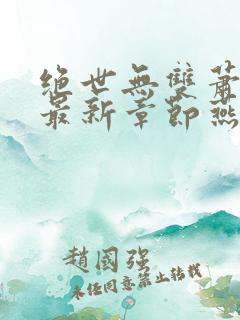 絕世無雙蕭
最新章節燕
趙國強
未經同意禁止轉載